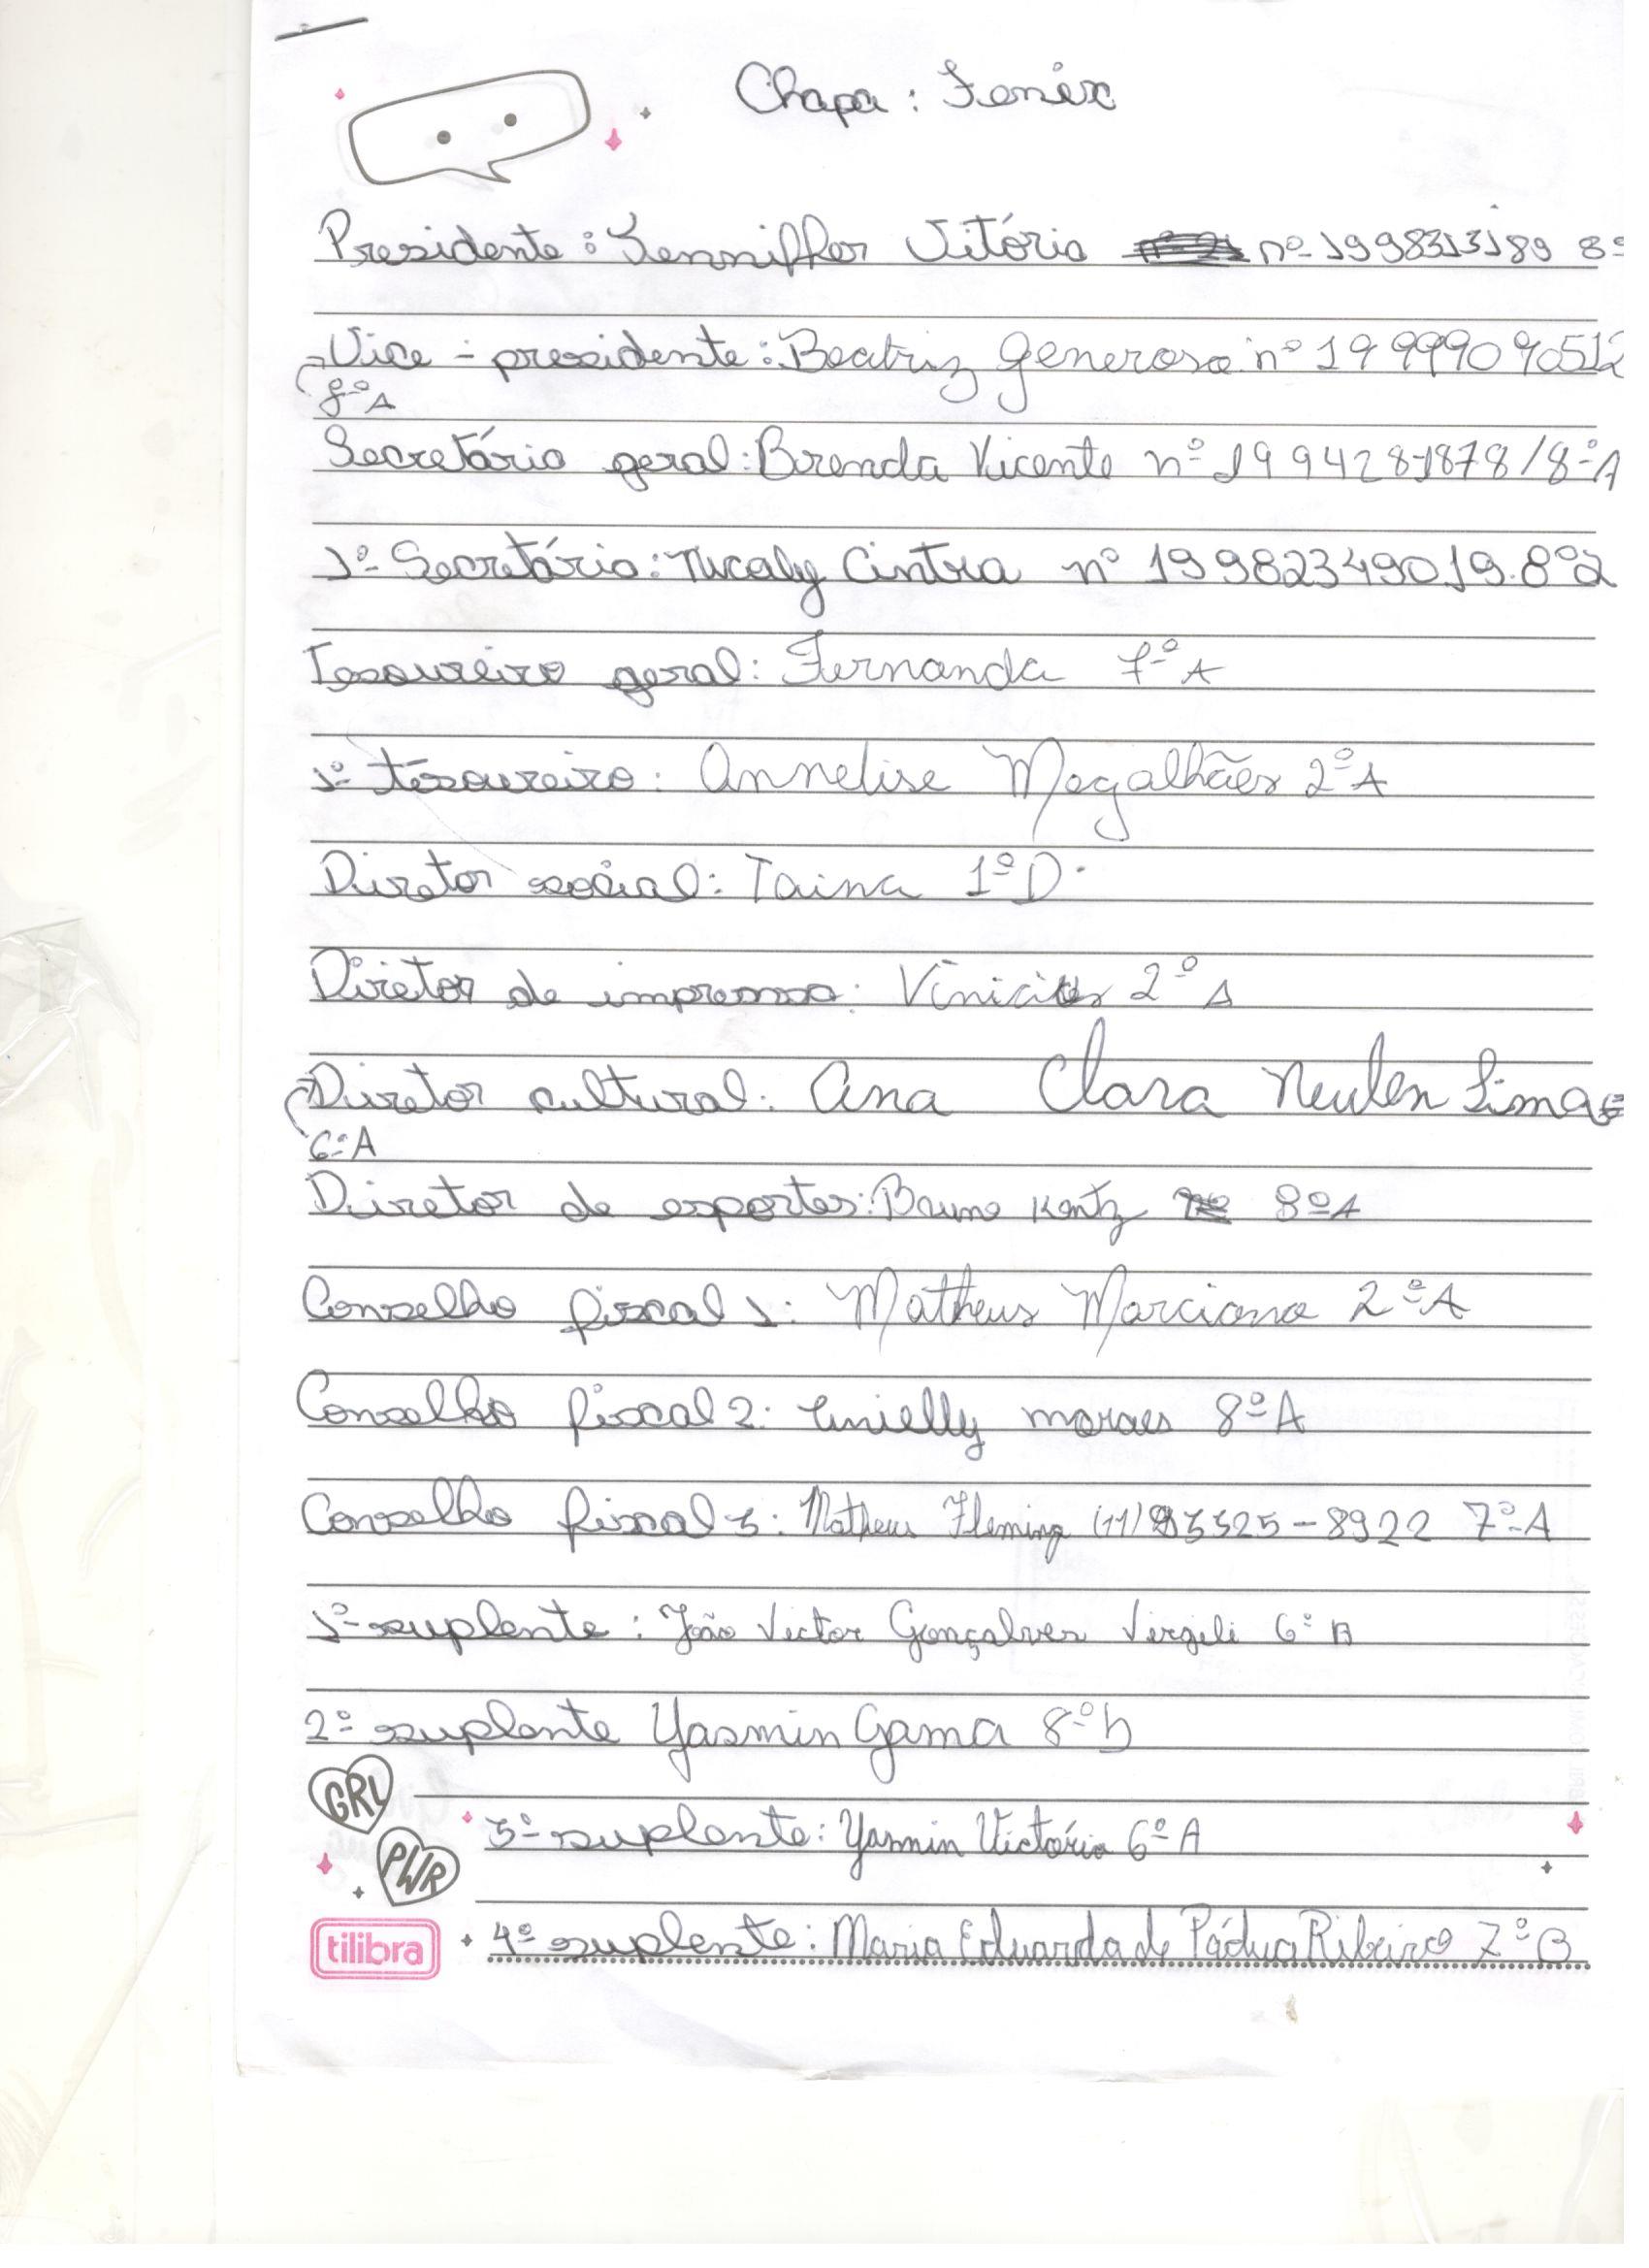 Chapa: Fenix
Presidente: Jenniffer Vitória nº 1998313189 8º
Vice-presidente: Beatriz Generoso nº 19 999090512
8º A
Secretário geral: Brenda Vicente nº 19 94281878/8º A
1º Secretário: Micaly Cintra nº 19982349019.8º a
Tesoureiro geral: Fernanda 7º A
1º tesoureiro: Annelise Magalhães 2º A
Diretor social: Taina 1º D
Diretor de imprensa: Vinicius 2º A
Diretor cultural: Ana Clara Neulen Lima
6º A
Diretor de esportes: Bruno Kentz 8º A
Conselho fiscal 1: Matheus Marciano 2º A
Conselho fiscal 2: Emielly moraes 8º A
Conselho fiscal 3: Matheus Fleming (11) 93325-8922 7º A
1º suplente: João Victor Gonçalves Vergili 6º B
2º suplente Yasmin Gama 8º b
GRL
3º suplente: Yasmin Victória 6º A
PWR
tilibra
4º suplente: Maria Eduarda de Pádua Ribeiro 7º B